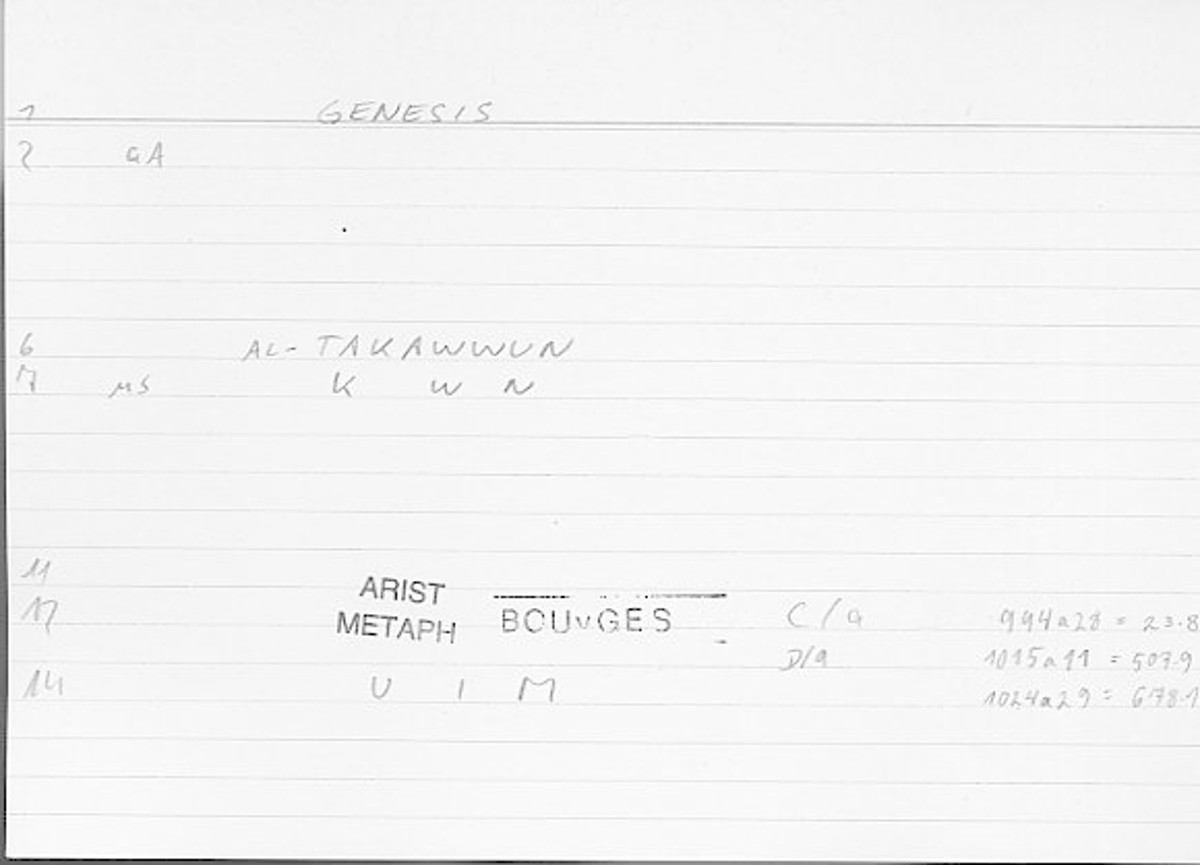 1 GENESIS
2 GA
6 AL-TAKAWWUN
7 MS K W N
11
ARIST
12 METAPH BOUYGES C/a 994a28 = 23.8
D/a 1015a11 = 507.9
14 U I M 1024a29 = 678.1